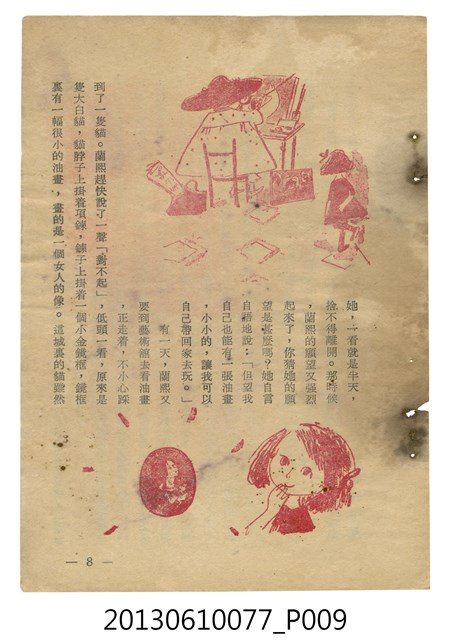 她，一看就是半天，
捨不得離開。那時候
，蘭熙的願望又強烈
起來了，你猜她的願
望是甚麼嗎？她自言
自語地說：「但望我
自己也能有一張油畫
，小小的，讓我可以
自己帶回家去玩。」
有一天，蘭熙又
要到藝術館去看油畫
，正走着，不小心踩
到了一隻貓。蘭熙趕快說了一聲「對不起」，低頭一看，原來是
隻大白貓，貓脖子上掛着項鍊，鍊子上掛着一個小金鏡框，鏡框
裏有一幅很小的油畫，畫的是一個女人的像。這城裏的貓雖然
— 8 —
20130610077_P009